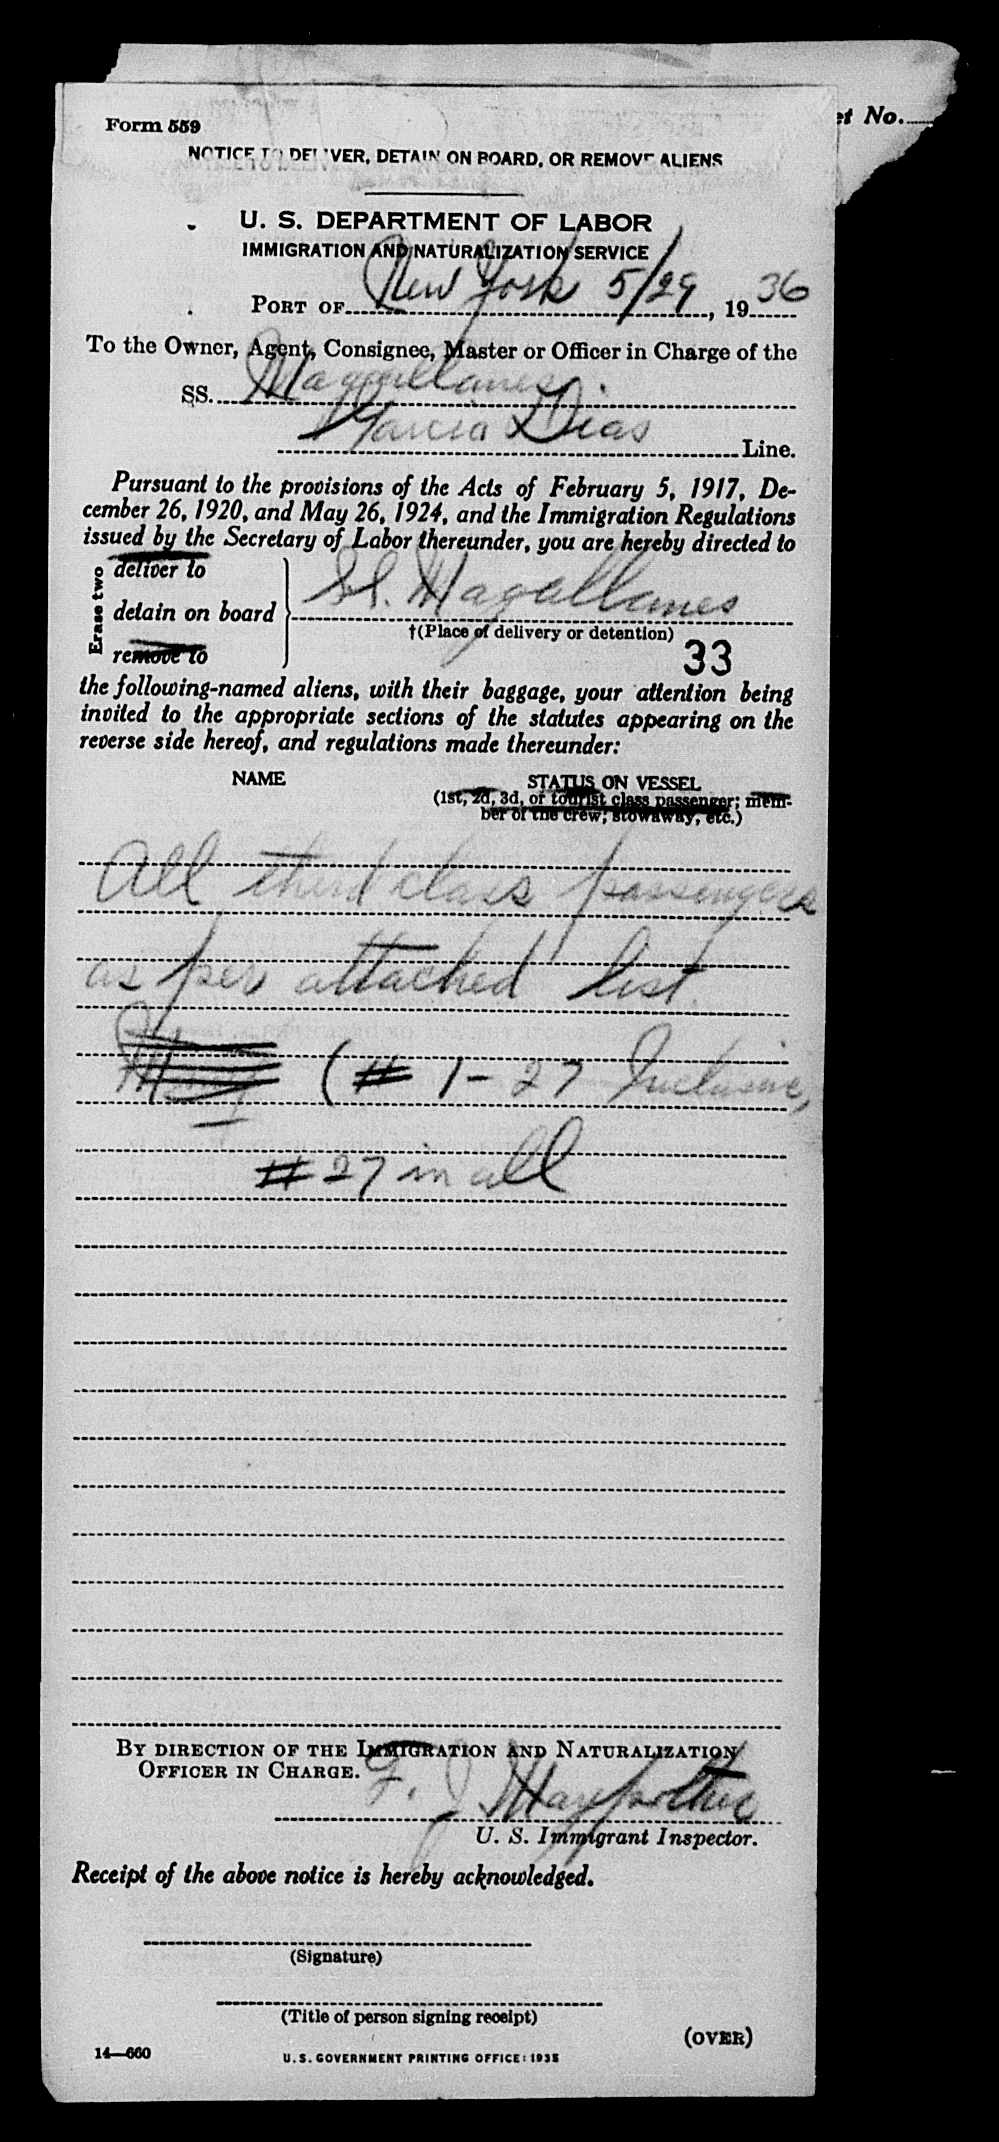 et No.
Form 559
NOTICE TO DELIVER, DETAIN ON BOARD, OR REMOVE ALIENS
U. S. DEPARTMENT OF LABOR
IMMIGRATION AND NATURALIZATION SERVICE
PORT OF New York 5/29, 1936
To the Owner, Agent, Consignee, Master or Officer in Charge of the
SS. Magallanes
Garcia Dias Line.
Pursuant to the provisions of the Acts of February 5, 1917, De-
cember 26, 1920, and May 26, 1924, and the Immigration Regulations
issued by the Secretary of Labor thereunder, you are hereby directed to
Erase two
deliver to
detain on board SS. Magallanes
†(Place of delivery or detention)
remove to
33
the following-named aliens, with their baggage, your attention being
invited to the appropriate sections of the statutes appearing on the
reverse side hereof, and regulations made thereunder:
NAME STATUS ON VESSEL
(1st, 2d, 3d, or tourist class passenger; mem-
ber of the crew; stowaway, etc.)
All third class passengers
as per attached list.
(# 1-27 Inclusive,
# 27 in all
BY DIRECTION OF THE IMMIGRATION AND NATURALIZATION
OFFICER IN CHARGE.
F. J.
U. S. Immigrant Inspector.
Receipt of the above notice is hereby acknowledged.
(Signature)
(Title of person signing receipt)
(OVER)
14—660
U. S. GOVERNMENT PRINTING OFFICE: 1935